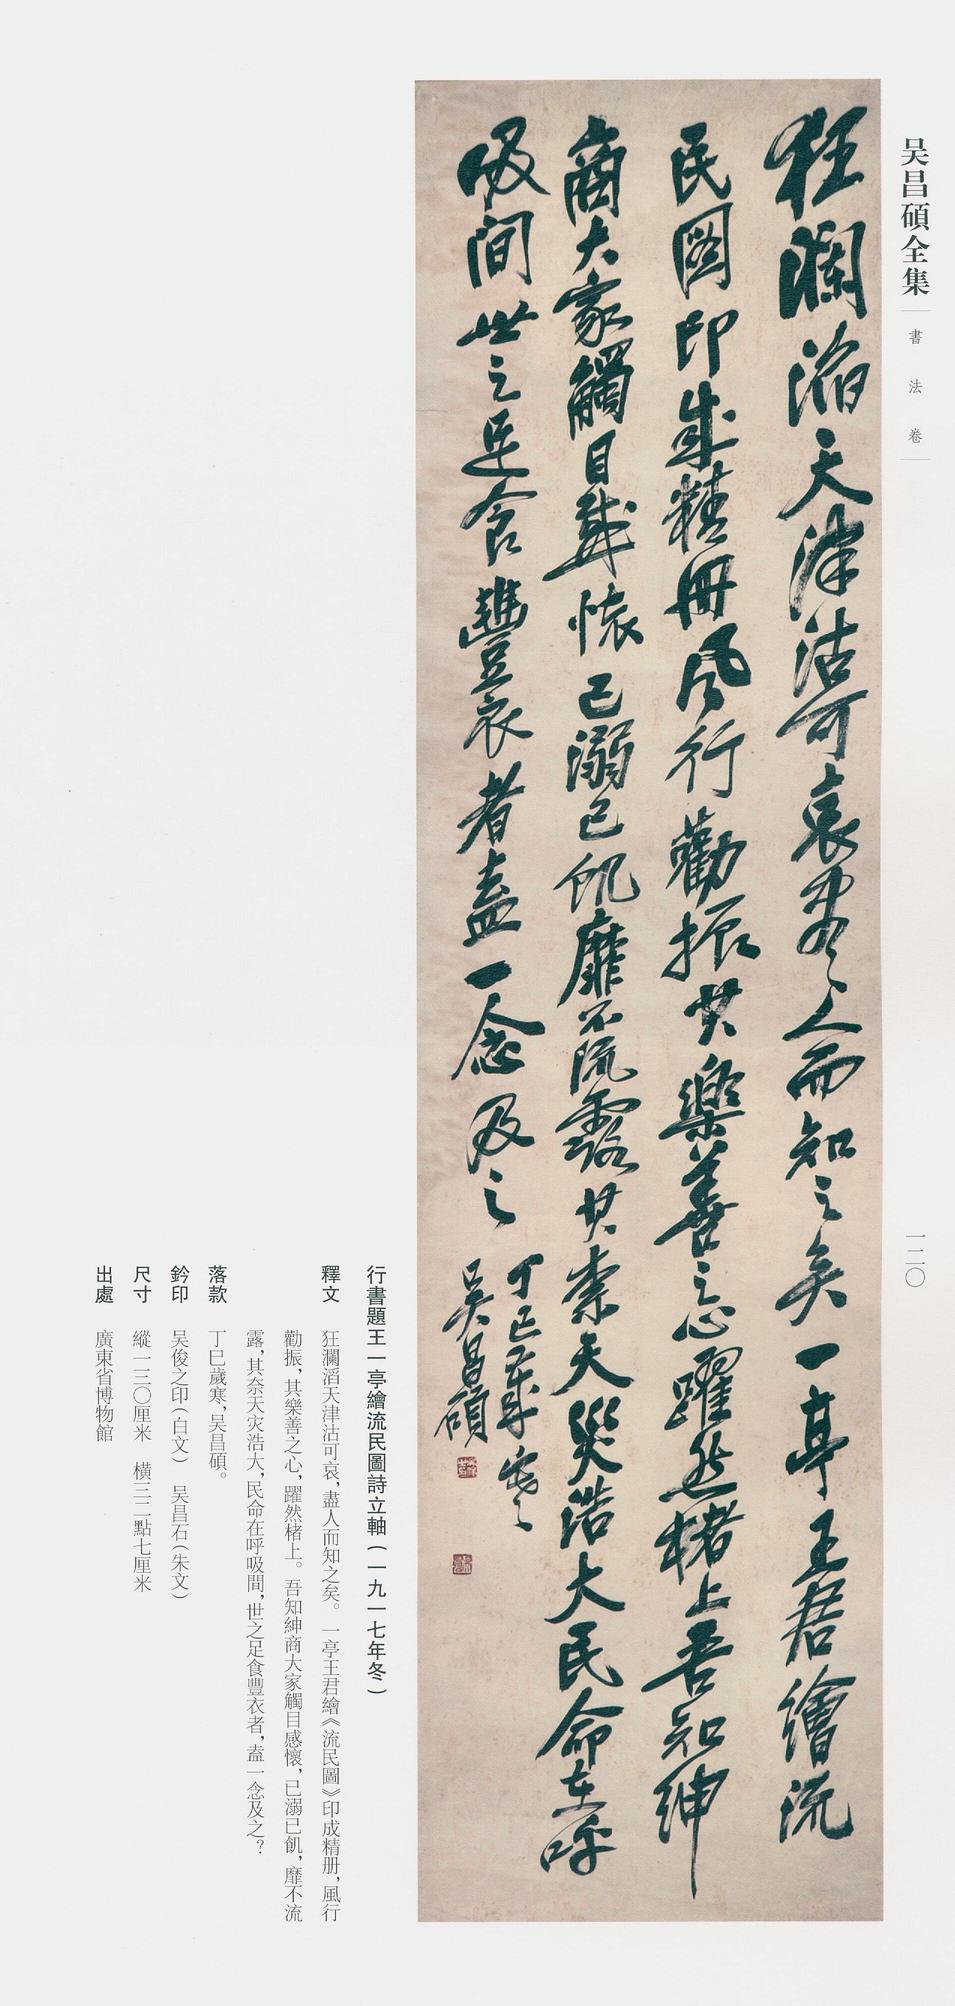 吴昌碩全集
書法卷
一二〇
狂瀾滔天津沽可哀盡人而知之矣一亭王君繪流
民圖印成精冊風行勸振其樂善之心躍然楮上吾知紳
商大家觸目感懷己溺己飢靡不流露其柰天災浩大民命在呼
吸間世之足食豐衣者盍一念及之
丁巳歲寒
吴昌碩
行書題王一亭繪流民圖詩立軸(一九一七年冬)
釋文 狂瀾滔天津沽可哀,盡人而知之矣。一亭王君繪《流民圖》印成精册,風行
勸振,其樂善之心,躍然楮上。吾知紳商大家觸目感懷,已溺已飢,靡不流
露,其奈天灾浩大,民命在呼吸間,世之足食豐衣者,盍一念及之?
落款 丁巳歲寒,吴昌碩。
鈐印 吴俊之印(白文) 吴昌石(朱文)
尺寸 縱一三〇厘米 橫三二點七厘米
出處 廣東省博物館